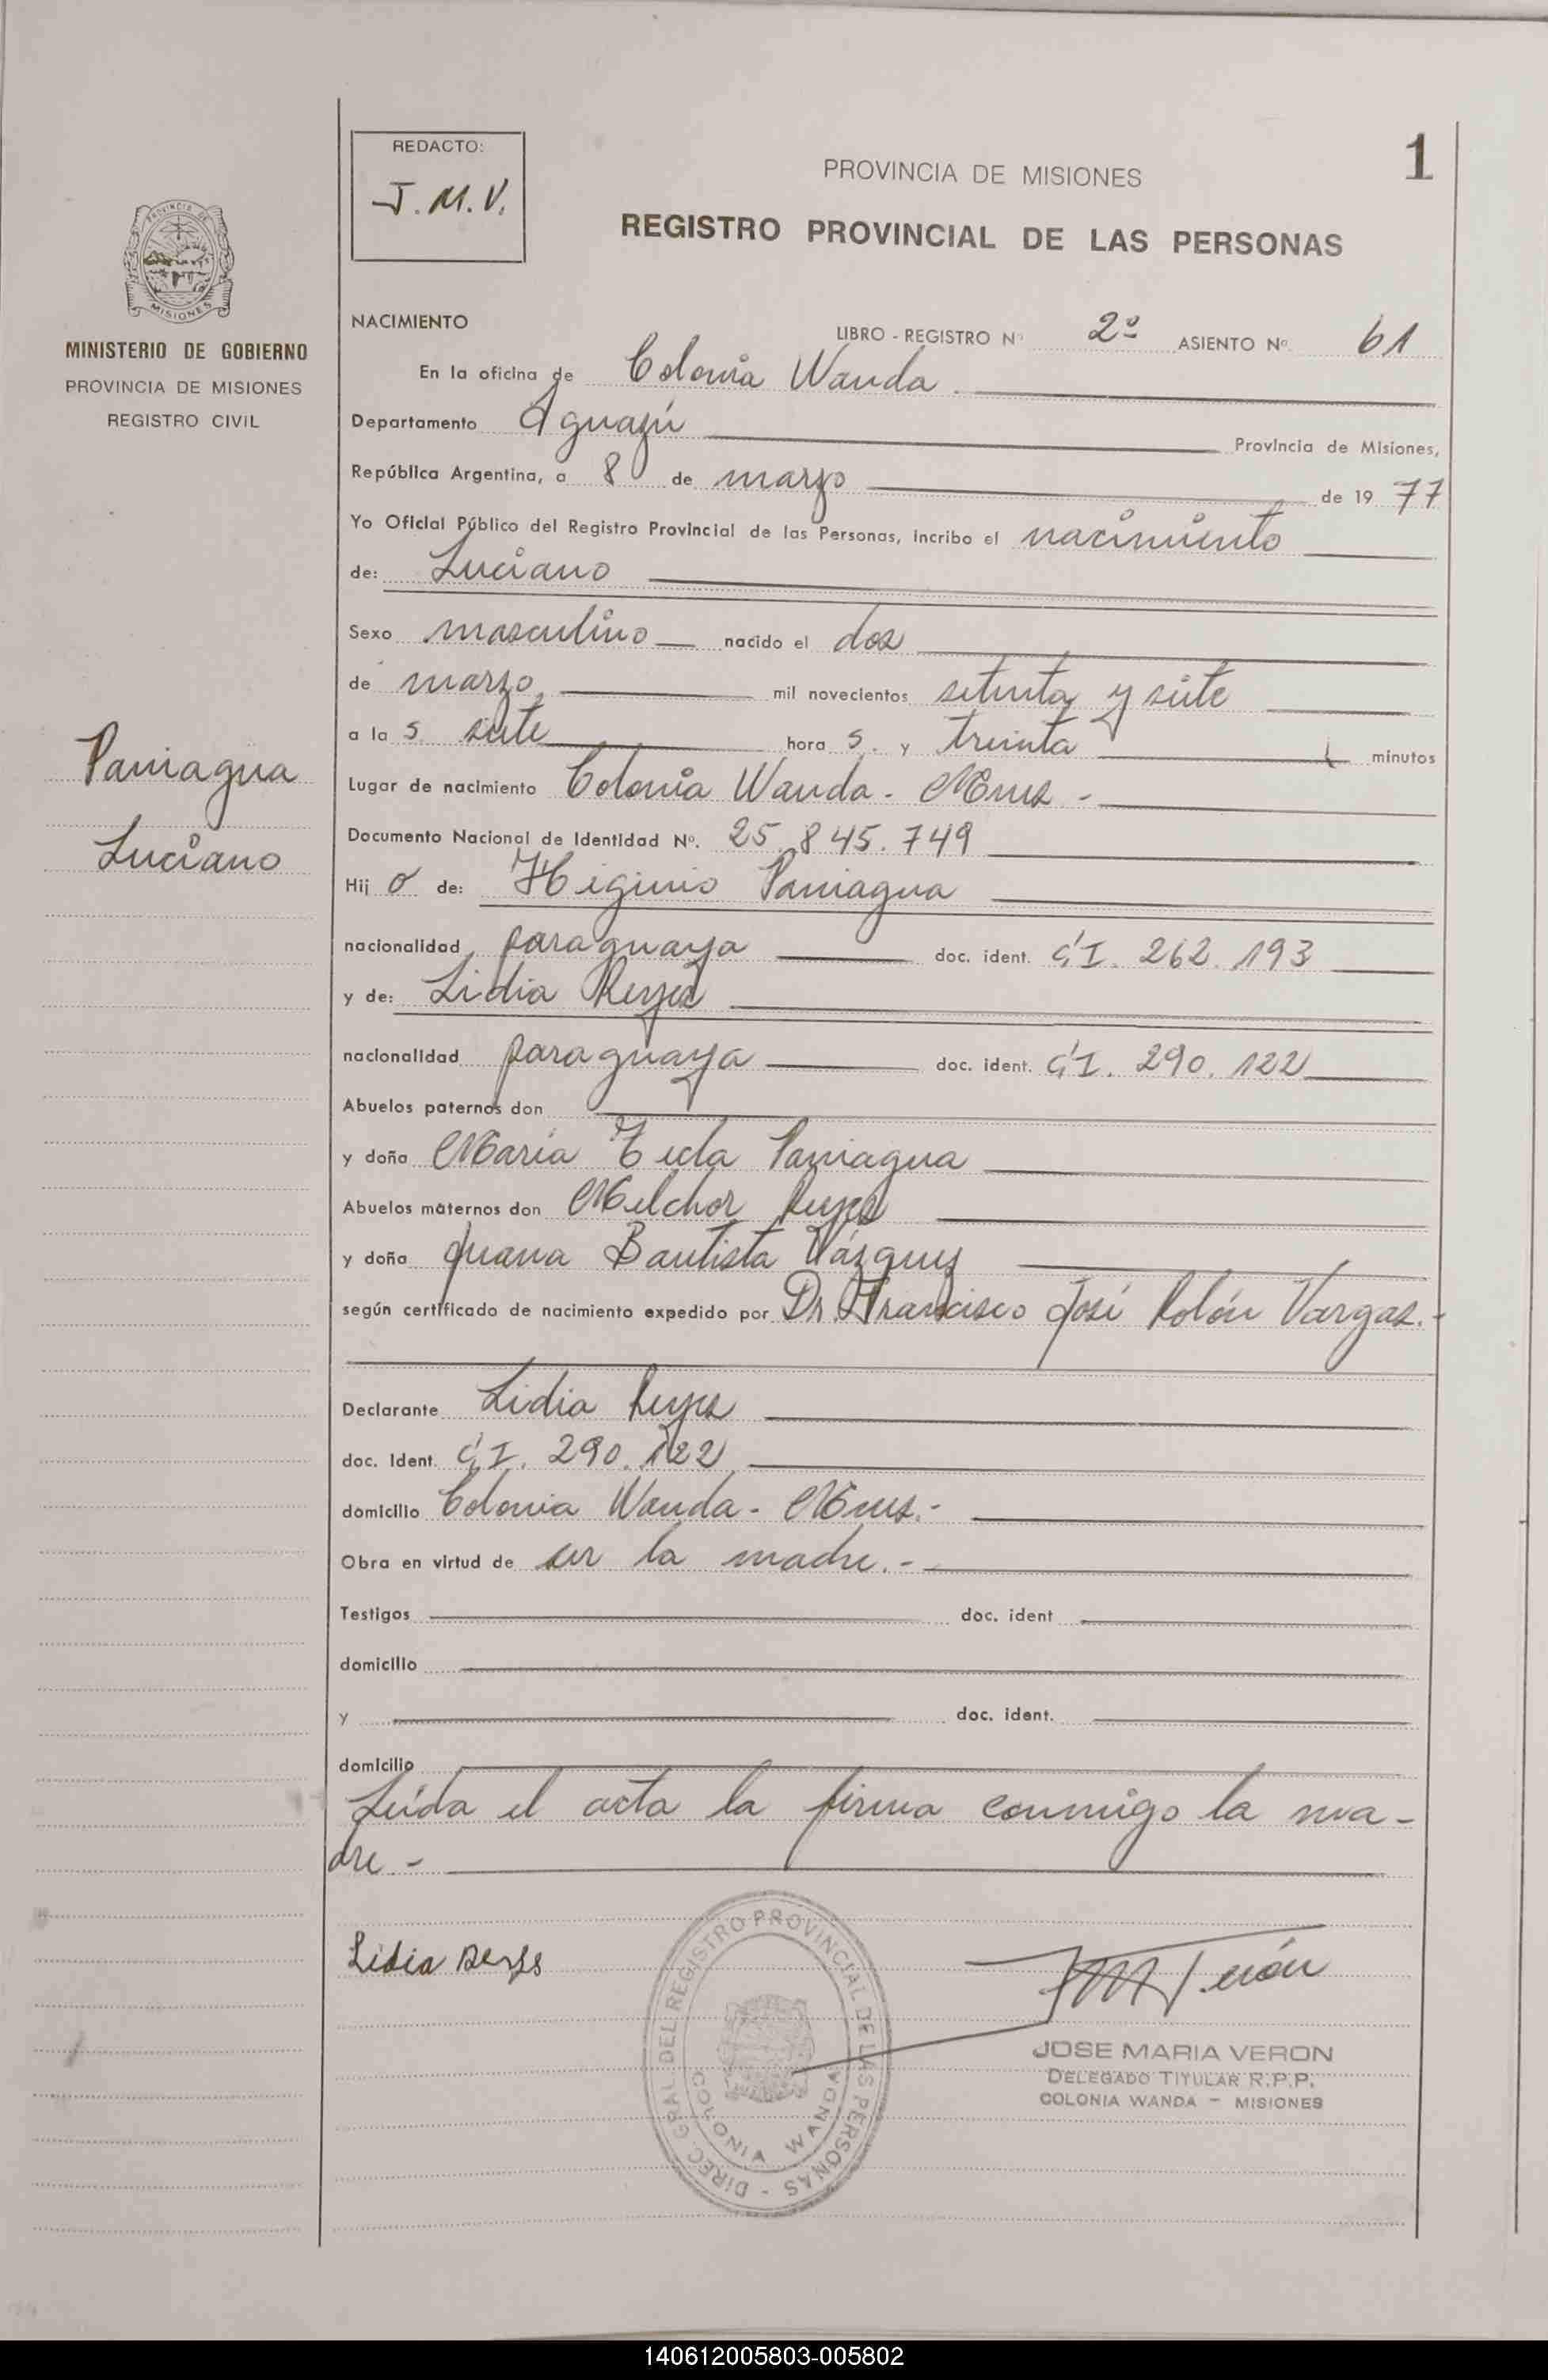 REDACTO:
J.M.V.
1
PROVINCIA DE MISIONES
REGISTRO PROVINCIAL DE LAS PERSONAS
MISIONES
MINISTERIO DE GOBIERNO
PROVINCIA DE MISIONES
REGISTRO CIVIL
Paniagua
Luciano
NACIMIENTO
LIBRO - REGISTRO Nº 2º ASIENTO Nº 61
En la oficina de Colonia Wanda
Departamento Iguazú Provincia de Misiones,
República Argentina, a 8 de marzo de 1977
Yo Oficial Público del Registro Provincial de las Personas, incribo el nacimiento
de: Luciano
Sexo masculino nacido el dos
de marzo, mil novecientos setenta y siete
a la s siete hora s. y treinta minutos
Lugar de nacimiento Colonia Wanda - Mnes -
Documento Nacional de Identidad Nº. 25.845.749
Hij o de: Higinio Paniagua
nacionalidad paraguaya doc. ident. C.I. 262.193
y de: Lidia Reyes
nacionalidad paraguaya doc. ident. C.I. 290.122
Abuelos paternos don
y doña María Tecla Paniagua
Abuelos maternos don Melchor Reyes
y doña Juana Bautista Vázquez
según certificado de nacimiento expedido por Dr. Francisco José Rolón Vargas.-
Declarante Lidia Reyes
doc. Ident. C.I. 290.122
domicilio Colonia Wanda - Mnes.-
Obra en virtud de ser la madre.-
Testigos doc. ident
domicilio
y doc. ident.
domicilio
Leída el acta la firma conmigo la ma-
dre -
Lidia Reyes
DIREC. GRAL. DEL REGISTRO PROVINCIAL DE LAS PERSONAS -
COLONIA WANDA
JOSE MARIA VERON
DELEGADO TITULAR R.P.P.
COLONIA WANDA - MISIONES
140612005803-005802